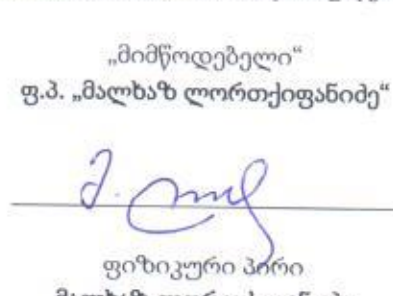 „მიმწოდებელი“
ფ.პ. „მალხაზ ლორთქიფანიძე“
ფიზიკური პირი